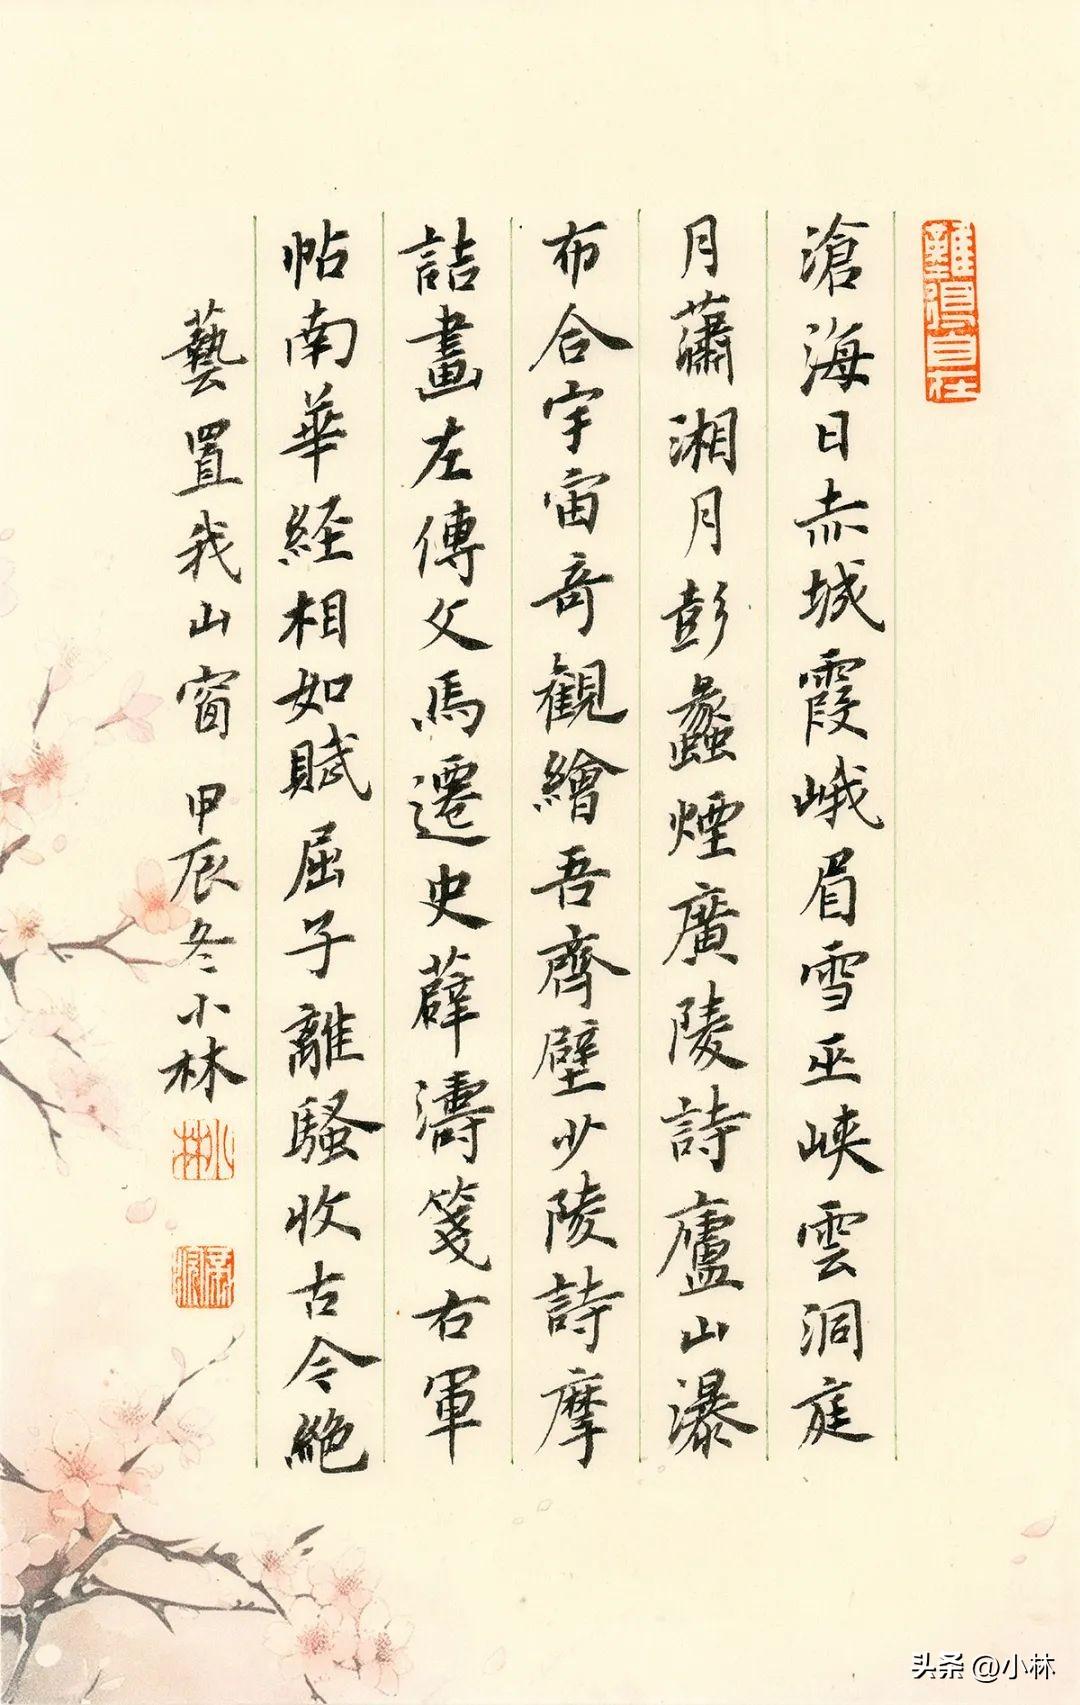 難得自在
滄海日赤城霞峨眉雪巫峡雲洞庭
月瀟湘月彭蠡煙廣陵詩廬山瀑
布合宇宙奇觀繪吾齊壁少陵詩摩
詰畫左傳文馬遷史薛濤箋右軍
帖南華経相如賦屈子離騷收古今絶
藝置我山窗 甲辰冬小林
小林
头条 @小林